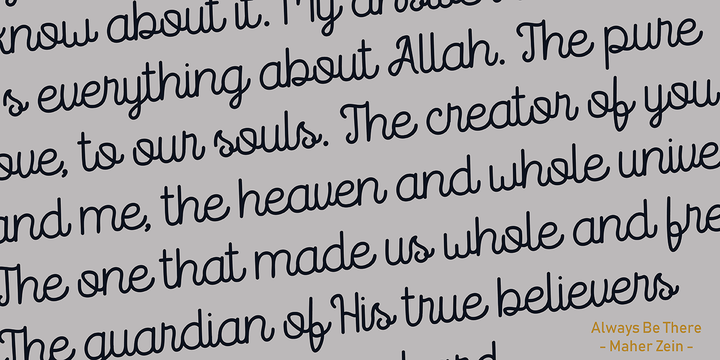 know about it. My
s everything about Allah. The pure
ove, to our souls. The creator of you
and me, the heaven and whole unive
The one that made us whole and fre
The guardian of His true believers
Always Be There
- Maher Zein -